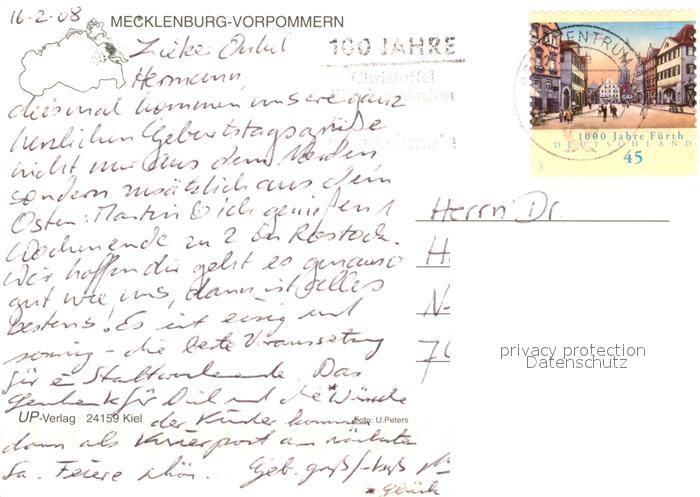 16.2.08
MECKLENBURG-VORPOMMERN
Lieber Onkel
Hermann,
diesmal kommen unsere ganz
herzlichen Geburtstagsgrüße
nicht nur aus dem Norden,
sondern zusätzlich aus dem
Osten: Martin & ich genießen 1
Wochenende zu 2. in Rostock.
Wir hoffen dir geht es genauso
gut wie uns, dann ist alles
bestens! Es ist eisig und
sonnig - die beste Voraussetzung
für e Stadtwochenende. Das
Geschenk für Dich und die *Wünsche
der Kinder kommen
dann als Kurierpost am nächsten
Sa. Feiere schön. Geb. gruß/-kuß
* Glück
UP-Verlag 24159 Kiel
Foto: U.Peters
100 JAHRE
Christoffel
BRIEFZENTRUM
1000 Jahre Fürth
DEUTSCHLAND
45
Herrn Dr.
H
N
7
privacy protection
Datenschutz